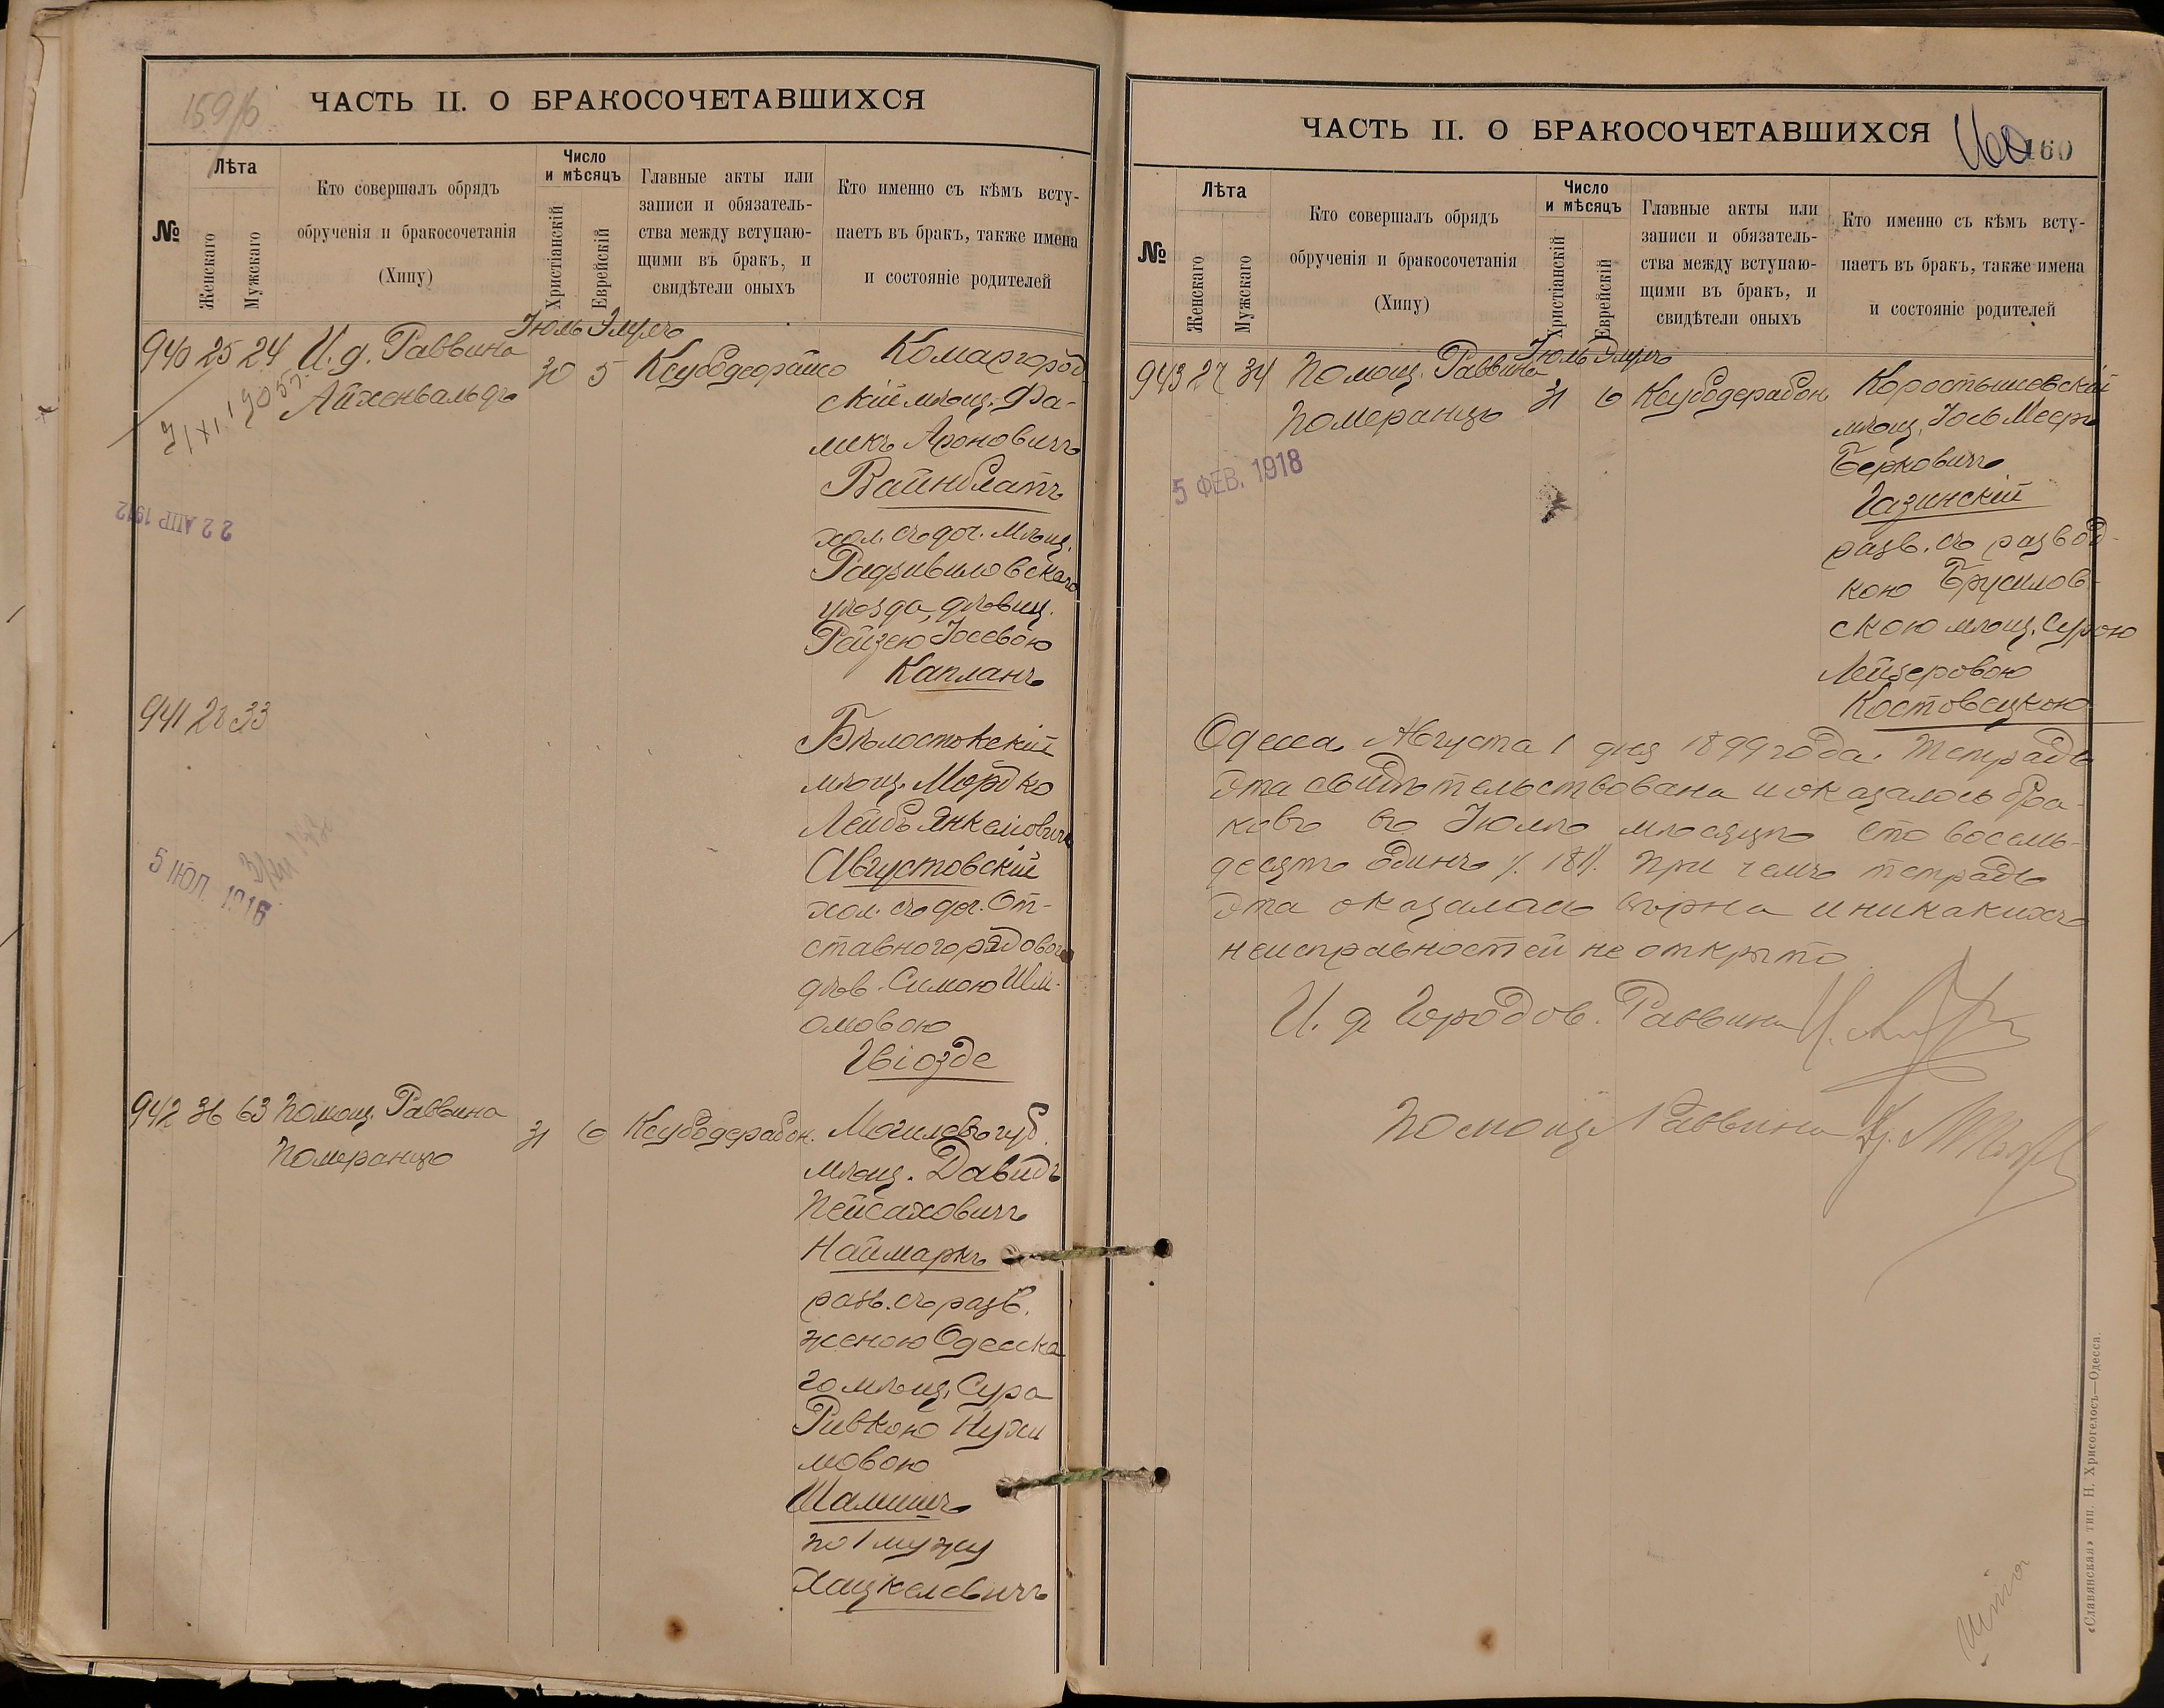 159/б
ЧАСТЬ II. О БРАКОСОЧЕТАВШИХСЯ
№
Лѣта
Женскаго
Мужскаго
Кто совершалъ обрядъ
обрученія и бракосочетанія
(Хипу)
Число
и мѣсяцъ
Христіанскій
Еврейскій
Главные акты или
записи и обязатель-
ства между вступаю-
щими въ бракъ, и
свидѣтели оныхъ
Кто именно съ кѣмъ всту-
паетъ въ бракъ, также имена
и состояніе родителей
Іюль Элулъ
940 25 24 И. д. Раввина
Айхенвальдъ
30 5
Комаргород
скій мѣщ. Фа-
Ароновичъ
Вайнблатъ
хол. съ доч. Мѣщ.
Радзивиловскаго
уѣзда, дѣвиц.
Рейзею Іосевою
Капланъ
22 АПР 1912
941 33
Бѣлостокскій
мѣщ. Мордко
Лейбъ Янкелювичъ
Августовскій
хол. съ доч. От-
ставного рядового
дѣв. Симою Шли-
омовою
Гвіозде
5 ІЮЛ. 1916
942 36 63 Помощ. Раввина
Померанцъ
31 6 Ксубодерабон.
Могилев. губ.
мѣщ. Давидъ
Пейсаховичъ
Наймаркъ
разв. съ разв.
женою Одесска
го мѣщ. Сура
Ривкою Нухи
мовою
по 1 мужу
Хацкелевичъ
ЧАСТЬ II. О БРАКОСОЧЕТАВШИХСЯ
160
160
№
Лѣта
Женскаго
Мужскаго
Кто совершалъ обрядъ
обрученія и бракосочетанія
(Хипу)
Число
и мѣсяцъ
Христіанскій
Еврейскій
Главные акты или
записи и обязатель-
ства между вступаю-
щими въ бракъ, и
свидѣтели оныхъ
Кто именно съ кѣмъ всту-
паетъ въ бракъ, также имена
и состояніе родителей
Іюль Элулъ
943 27 34 Помощ. Раввина
Померанцъ
31 6 Ксубодерабон
Коростышевскій
мѣщ. Іось Мееръ
Берковичъ
Газинскій
разв. съ развод-
кою Брусилов-
скою мѣщ. Сурою
Лейзеровою
Костовецкою
5 ФЕВ. 1918
Одесса Августа 1 дня 1899 года. Тетрадь
эта свидѣтельствована и оказалось бра-
ковъ въ Іюлѣ мѣсяцѣ сто восемь-
десятъ одинъ /. 181/. При чемъ тетрадь
эта оказалась вѣрна и никакихъ
неисправностей не открыто
И. д. Городов. Раввина
Помощ. Раввина
«Славянская» тип. Н. Хрисогелосъ—Одесса.